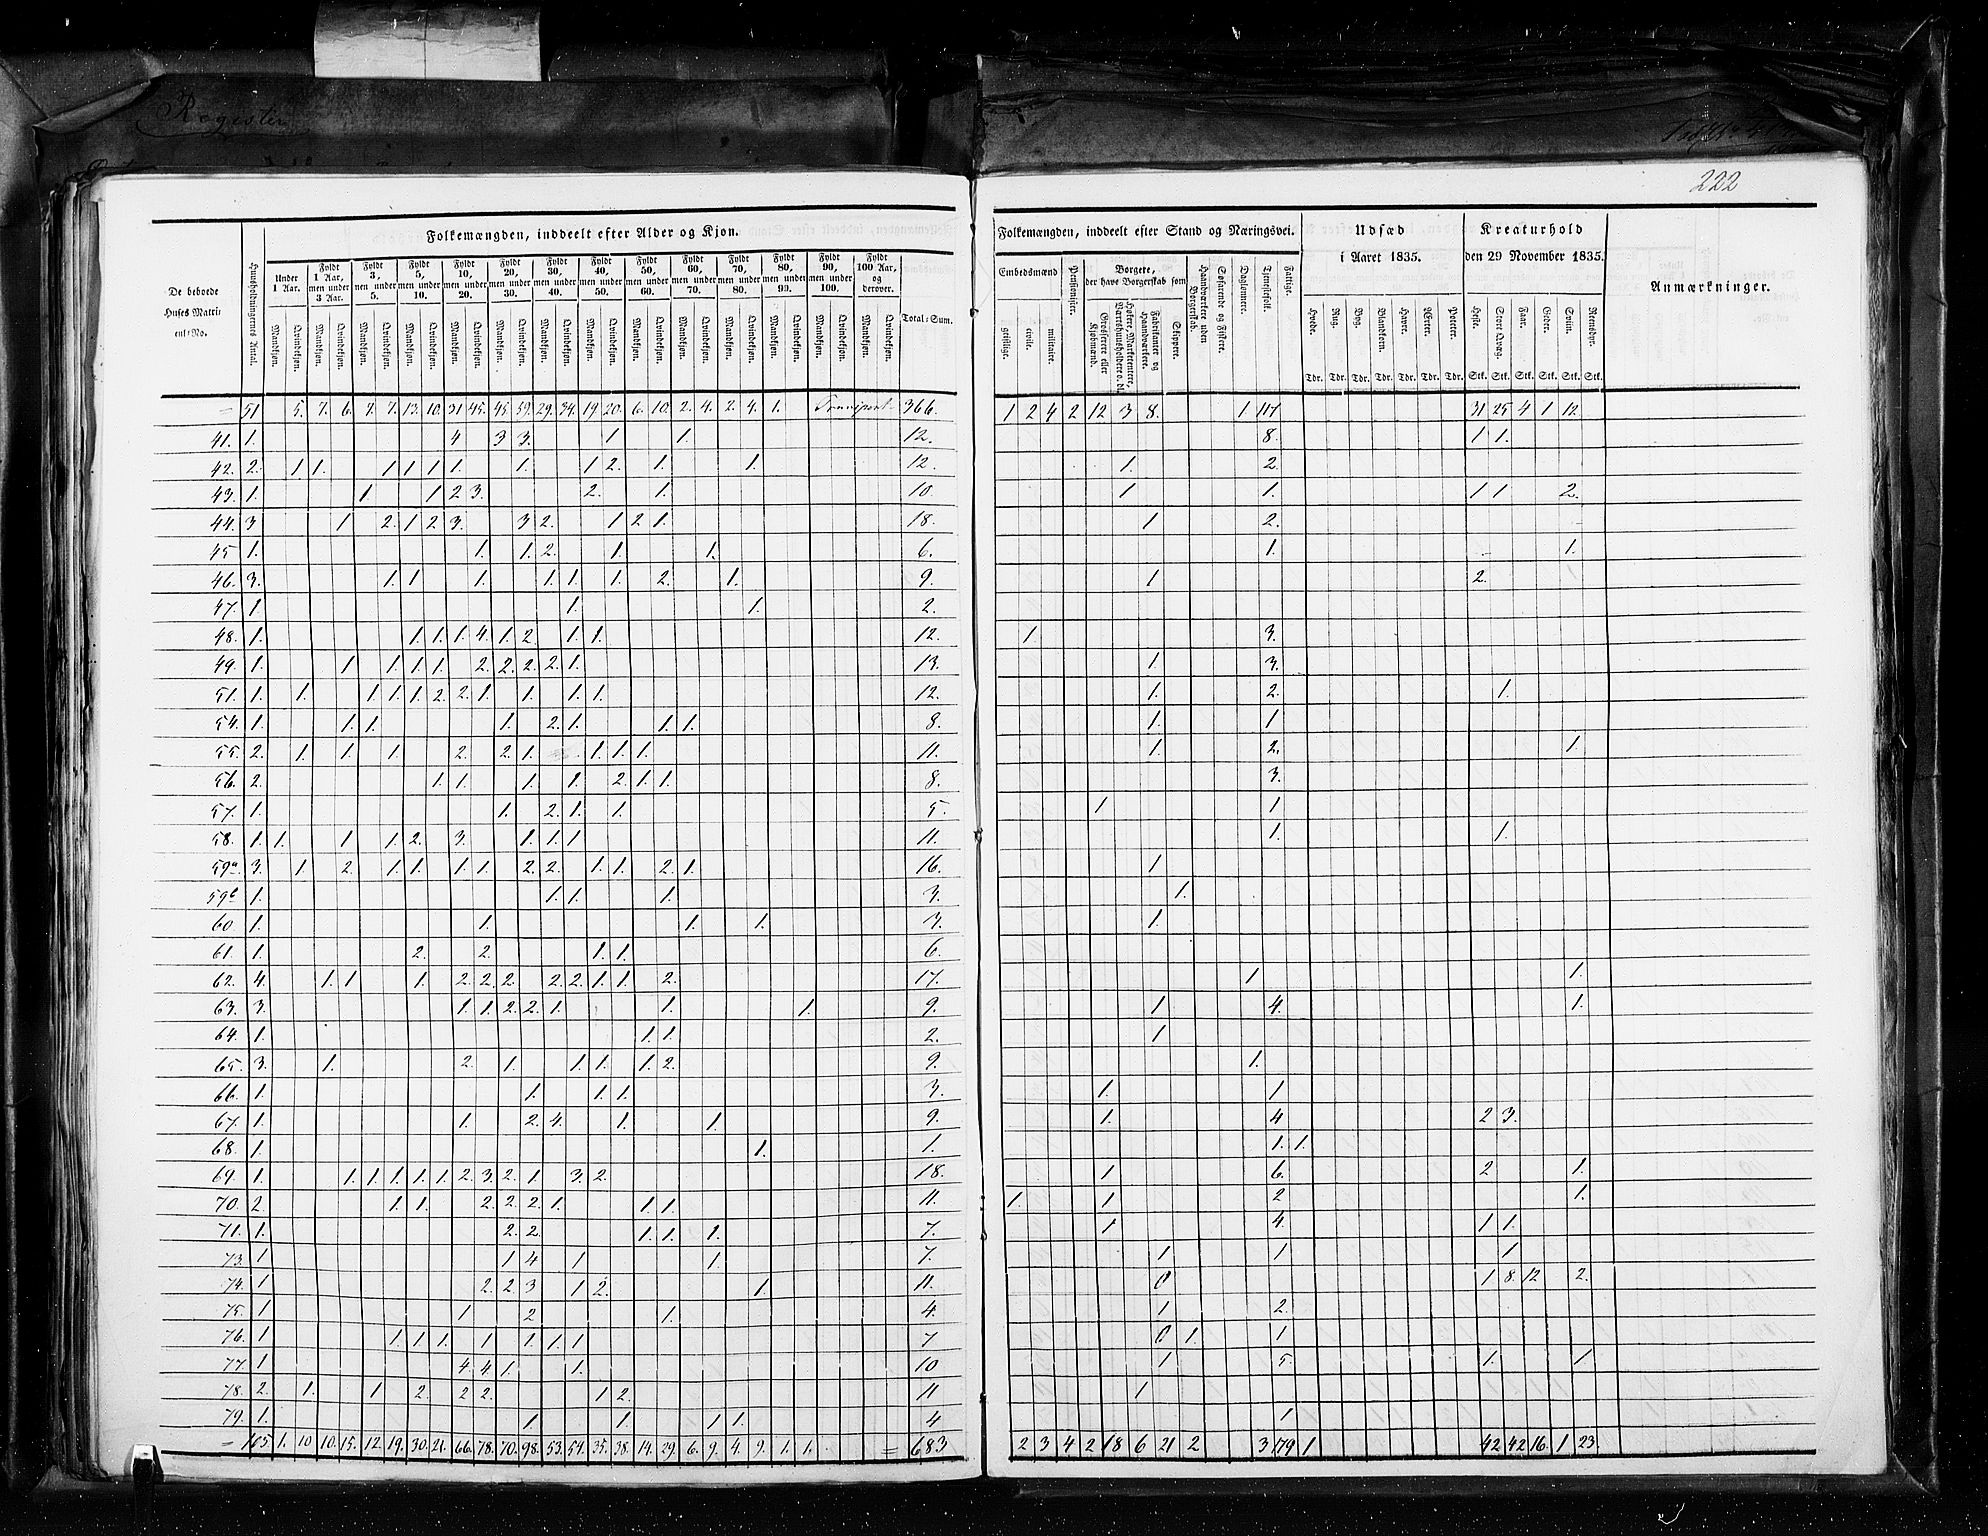 Register
222
Folkemængden, inddeelt efter Alder og Kjøn.
De beboede Huses Matricul No.
Huusholdningernes Antal.
Under 1 Aar.
Fyldt 1 Aar, men under 3 Aar.
Fyldt 3, men under 5.
Fyldt 5, men under 10.
Fyldt 10, men under 20.
Fyldt 20, men under 30.
Fyldt 30, men under 40.
Fyldt 40, men under 50.
Fyldt 50, men under 60.
Fyldt 60, men under 70.
Fyldt 70, men under 80.
Fyldt 80, men under 90.
Fyldt 90, men under 100.
Fyldt 100 Aar, og derover.
Mandkjøn. Qvindekjøn.
Total-Sum.
= 51 5. 7. 6. 7. 7. 13. 10. 31 45. 45. 59. 29. 34. 19. 20. 6. 10. 2. 4. 2. 4. 1. Transport 366.
41. 1. 4 3 3. 1 1. 12.
42. 2. 1 1. 1 1 1 1. 1. 1 2. 1. 1. 12.
43. 1. 1. 1 2 3. 2. 1. 10
44. 3 1 2. 1 2 3. 3 2. 1 2 1. 18.
45 1. 1. 1. 2. 1. 1. 6.
46. 3. 1. 1 1. 1. 1. 1. 2. 1. 9.
47. 1. 1. 1. 2.
48. 1. 1. 1. 1. 4. 1. 2 1. 1. 12.
49. 1. 1 1. 1. 1. 2. 2. 2. 2. 1. 13.
51. 1. 1. 1 1. 1. 2. 2. 1 1. 1. 1. 12.
54. 1. 1. 1. 1. 2. 1. 1. 1. 8.
55. 2. 1. 1. 1. 2. 2. 1. 1. 1. 1. 11.
56. 2. 1. 1. 1. 1. 2. 1. 1. 8.
57. 1. 1. 2. 1. 1. 5.
58. 1. 1. 1 1. 2. 3. 1. 1. 1 11.
59a. 3. 1. 2. 1. 1. 1. 1. 2. 2. 1. 1. 2. 1. 16.
59b 1. 1. 1. 1. 3.
60. 1. 1. 1. 1. 3.
61. 1. 2. 2. 1. 1. 6.
62. 4. 1. 1 1. 2. 2. 2. 2. 2. 1. 1. 2. 17.
63. 3. 1. 1. 2. 2. 1. 1. 1. 9.
64. 1. 1. 1. 2.
65. 3. 1. 2. 1. 1. 1. 1. 2. 9.
66. 1. 1. 1. 1. 3.
67. 1. 1. 2. 4. 1. 1. 9.
68. 1. 1. 1.
69. 1. 1. 1. 1. 1. 1. 2. 3. 2. 1. 3. 2. 18.
70. 2. 1. 1. 2. 2. 2. 1. 1. 1. 11.
71. 1. 2. 2. 1. 1. 1. 7.
73. 1 1 4 1 1. 7.
74. 1 2. 2. 3 1 2. 1. 11.
75. 1 1 2 1. 4.
76. 1 1. 1. 1. 1 1. 1. 1 7
77. 1 4. 4. 1. 1. 10
78. 2. 1. 1 2. 2 2. 1 2. 11
79. 1. 1 1. 1 1. 4
= 105 1. 10 10. 15. 12. 19. 30. 21. 66. 78. 70. 98. 53. 54. 35. 38. 14. 29. 6. 9. 4. 9. 1. 1. = 683
Folkemængden, inddeelt efter Stand og Næringsvei.
Embedsmænd
geistlige. civile. militaire.
Pensionister.
Borgere, der have Borgerskab som
Grosserere eller Kjøbmænd.
Høkere, Marketentere, Værtshuusholdere o. dl.
Fabrikanter og Haandværkere.
Skippere.
Haandværkere uden Borgerskab.
Søfarende og Fiskere.
Daglønnere.
Tjenestefolk.
Fattige.
Udsæd i Aaret 1835.
Hvede. Rug. Byg. Blandkorn. Havre. Ærter. Poteter.
Tdr. Tdr. Tdr. Tdr. Tdr. Tdr. Tdr.
Kreaturhold den 29 November 1835.
Heste. Stort Qvæg. Faar. Geder. Sviin. Rensdyr.
Stk. Stk. Stk. Stk. Stk. Stk.
Anmærkninger.
1 2 4 2 12 3 8. 1 117 31 25 4 1 12.
8. 1 1.
1. 2.
1 1. 1 1 2.
1 2.
1. 1.
1 2.
1. 3.
1. 3.
1. 2. 1.
1. 1
1. 2. 1.
3.
1 1
1. 1.
1
1.
1.
1 1.
1 4. 1.
1
1.
1. 1
1. 4 2 3.
1. 1.
1 6. 2 1.
1. 1 2 1.
1 4. 1 1.
1 1 1
0 1 8. 12 2.
1 2.
0 1. 1
1 5. 1. 1
1
1
2 3 4 2 18 6 21 2 3 179 1 42 42 16 1 23.